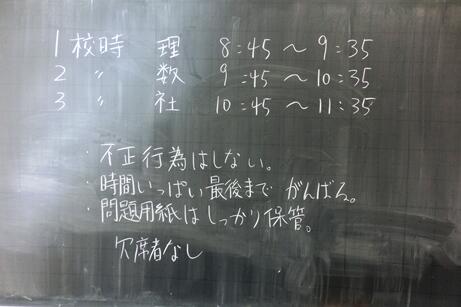 1 校時 理 8:45 〜 9:35
2 〃 数 9:45 〜 10:35
3 〃 社 10:45 〜 11:35
・不正行為はしない。
・時間いっぱい最後まで がんばる。
・問題用紙はしっかり保管。
欠席者なし